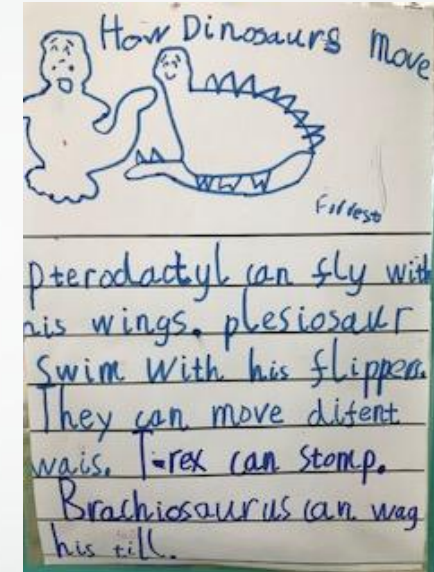 How Dinosaurs Move
Forrest
pterodactyl can fly with
his wings. plesiosaur
swim with his flippers.
They can move difent
wais. T-rex can stomp.
Brachiosaurus can wag
his till.